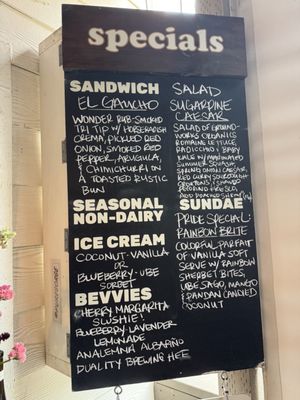 specials
SANDWICH
EL GAUCHO
WONDER RUB-SMOKED
TRI TIP W/ HORSERADISH
CREMA, PICKLED RED
ONION, SMOKED RED
PEPPER, ARUGULA,
& CHIMICHURRI ON
A TOASTED RUSTIC
BUN
SALAD
SUGARDINE
CAESAR
SALAD OF GROUND-
WORKS ORGANICS
ROMAINE LETTUCE,
RADICCHIO & BABY
KALE W/ MARINATED
SUMMER SQUASH,
SPRING ONION CAESAR,
RED CURRY SOURDOUGH
CROUTONS,
PECORINO FRESCA
AND POACHED
SEASONAL
NON-DAIRY
ICE CREAM
COCONUT-VANILLA
OR
BLUEBERRY-UBE
SORBET
SUNDAE
PRIDE SPECIAL:
RAINBOW BRITE
COLORFUL PARFAIT
OF VANILLA SOFT
SERVE W/ RAINBOW
SHERBET BITES,
UBE SAGO, MANGO
& PANDAN CANDIED
COCONUT
BEVVIES
CHERRY MARGARITA
SLUSHIE!
BLUEBERRY-LAVENDER
LEMONADE
ANALEMMA ALBARIÑO
DUALITY BREWING HEE